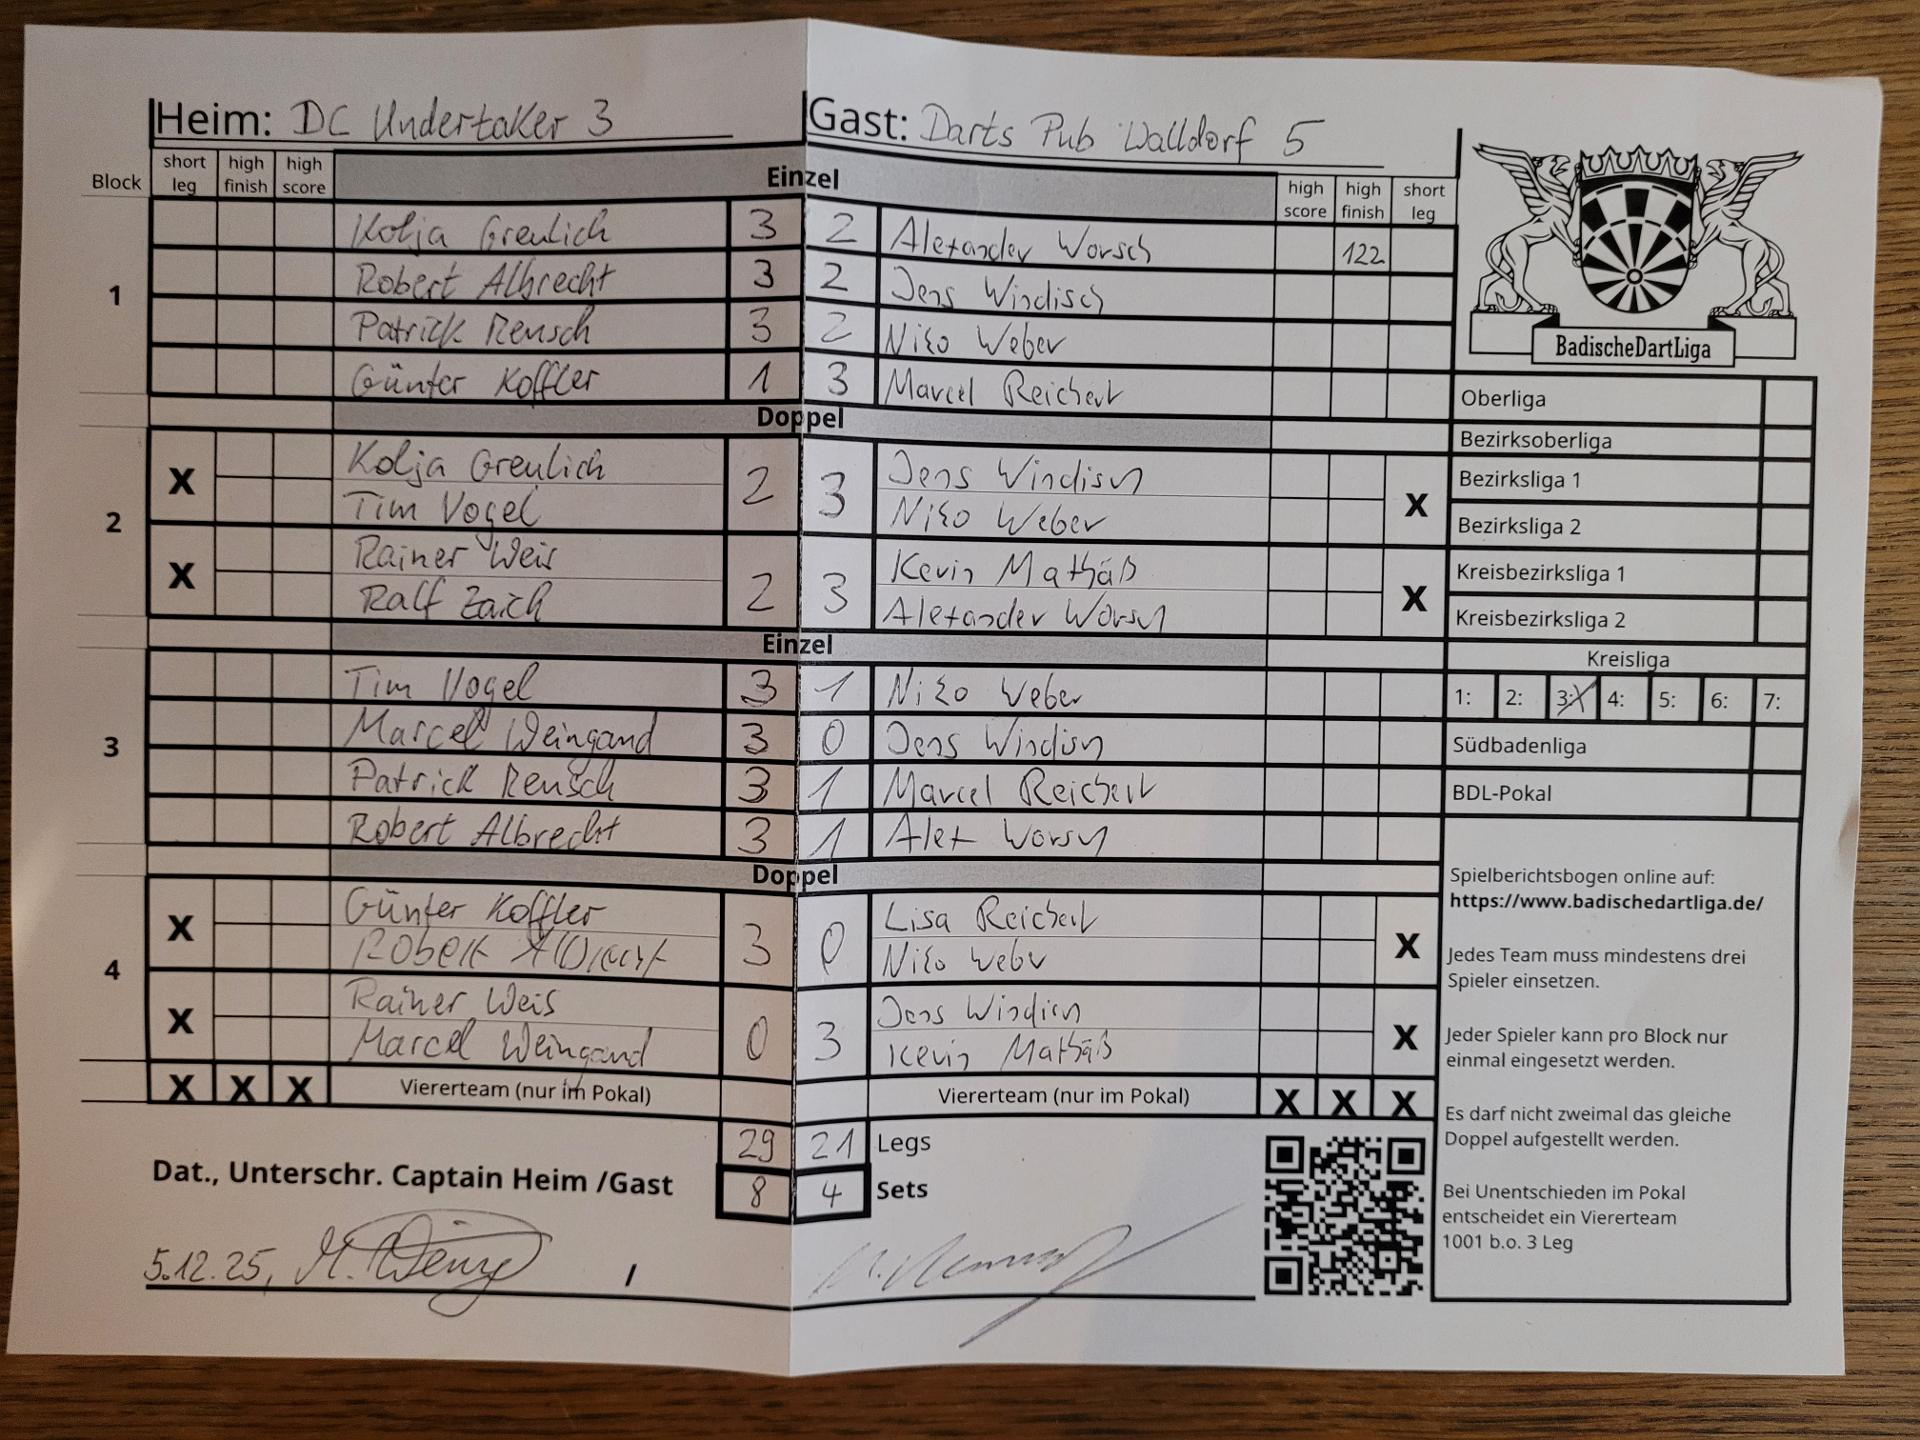 Heim: DC Undertaker 3 Gast: Darts Pub Walldorf 5
Block short leg high finish high score Einzel high score high finish short leg
1
Kolja Greulich 3 2 Alexander Worsch 122
Robert Albrecht 3 2 Jens Windisch
Patrick Rensch 3 2 Niko Weber
Günter Koffler 1 3 Marcel Reichert
Doppel
2
X Kolja Greulich 2 3 Jens Windisch X
Tim Vogel Niko Weber
X Rainer Weis 2 3 Kevin Mathäß X
Ralf Zaich Alexander Worsch
Einzel
3
Tim Vogel 3 1 Niko Weber
Marcel Weingand 3 0 Jens Windisch
Patrick Rensch 3 1 Marcel Reichert
Robert Albrecht 3 1 Alex Worsch
Doppel
4
X Günter Koffler 3 0 Lisa Reichert X
Robert Albrecht Niko Weber
X Rainer Weis 0 3 Jens Windisch X
Marcel Weingand Kevin Mathäß
X X X Viererteam (nur im Pokal) Viererteam (nur im Pokal) X X X
29 21 Legs
8 4 Sets
Dat., Unterschr. Captain Heim /Gast
5.12.25, /
BadischeDartLiga
Oberliga
Bezirksoberliga
Bezirksliga 1
Bezirksliga 2
Kreisbezirksliga 1
Kreisbezirksliga 2
Kreisliga
1: 2: 3: X 4: 5: 6: 7:
Südbadenliga
BDL-Pokal
Spielberichtsbogen online auf:
https://www.badischedartliga.de/
Jedes Team muss mindestens drei
Spieler einsetzen.
Jeder Spieler kann pro Block nur
einmal eingesetzt werden.
Es darf nicht zweimal das gleiche
Doppel aufgestellt werden.
Bei Unentschieden im Pokal
entscheidet ein Viererteam
1001 b.o. 3 Leg